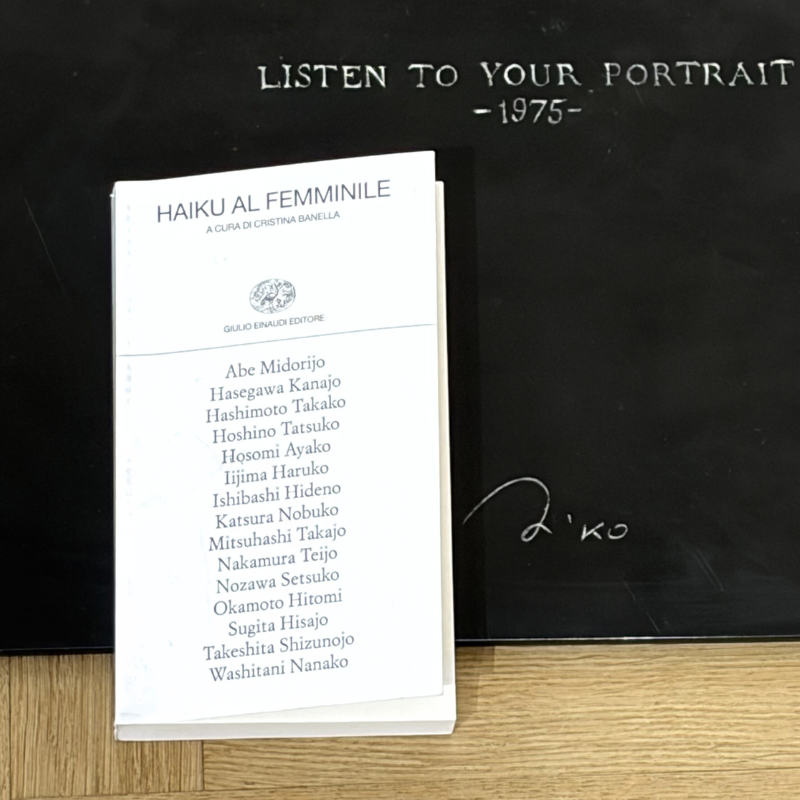 LISTEN TO YOUR PORTRAIT
-1975-
HAIKU AL FEMMINILE
A CURA DI CRISTINA BANELLA
GIULIO EINAUDI EDITORE
Abe Midorijo
Hasegawa Kanajo
Hashimoto Takako
Hoshino Tatsuko
Hosomi Ayako
Iijima Haruko
Ishibashi Hideno
Katsura Nobuko
Mitsuhashi Takajo
Nakamura Teijo
Nozawa Setsuko
Okamoto Hitomi
Sugita Hisajo
Takeshita Shizunojo
Washitani Nanako